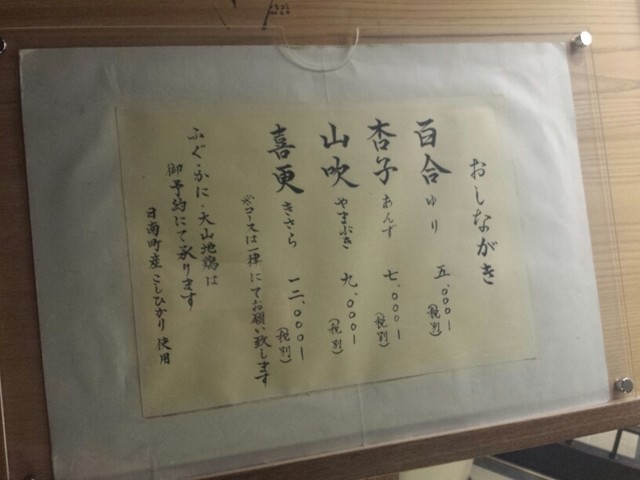 おしながき
百合 ゆり 五.〇〇〇ー (税別)
杏子 あんず 七.〇〇〇ー (税別)
山吹 やまぶき 九.〇〇〇ー (税別)
喜更 きさら 一二.〇〇〇ー (税別)
※コースは一律にてお願い致します
ふぐ・かに・大山地鶏は
御予約にて承ります
日南町産こしひかり使用